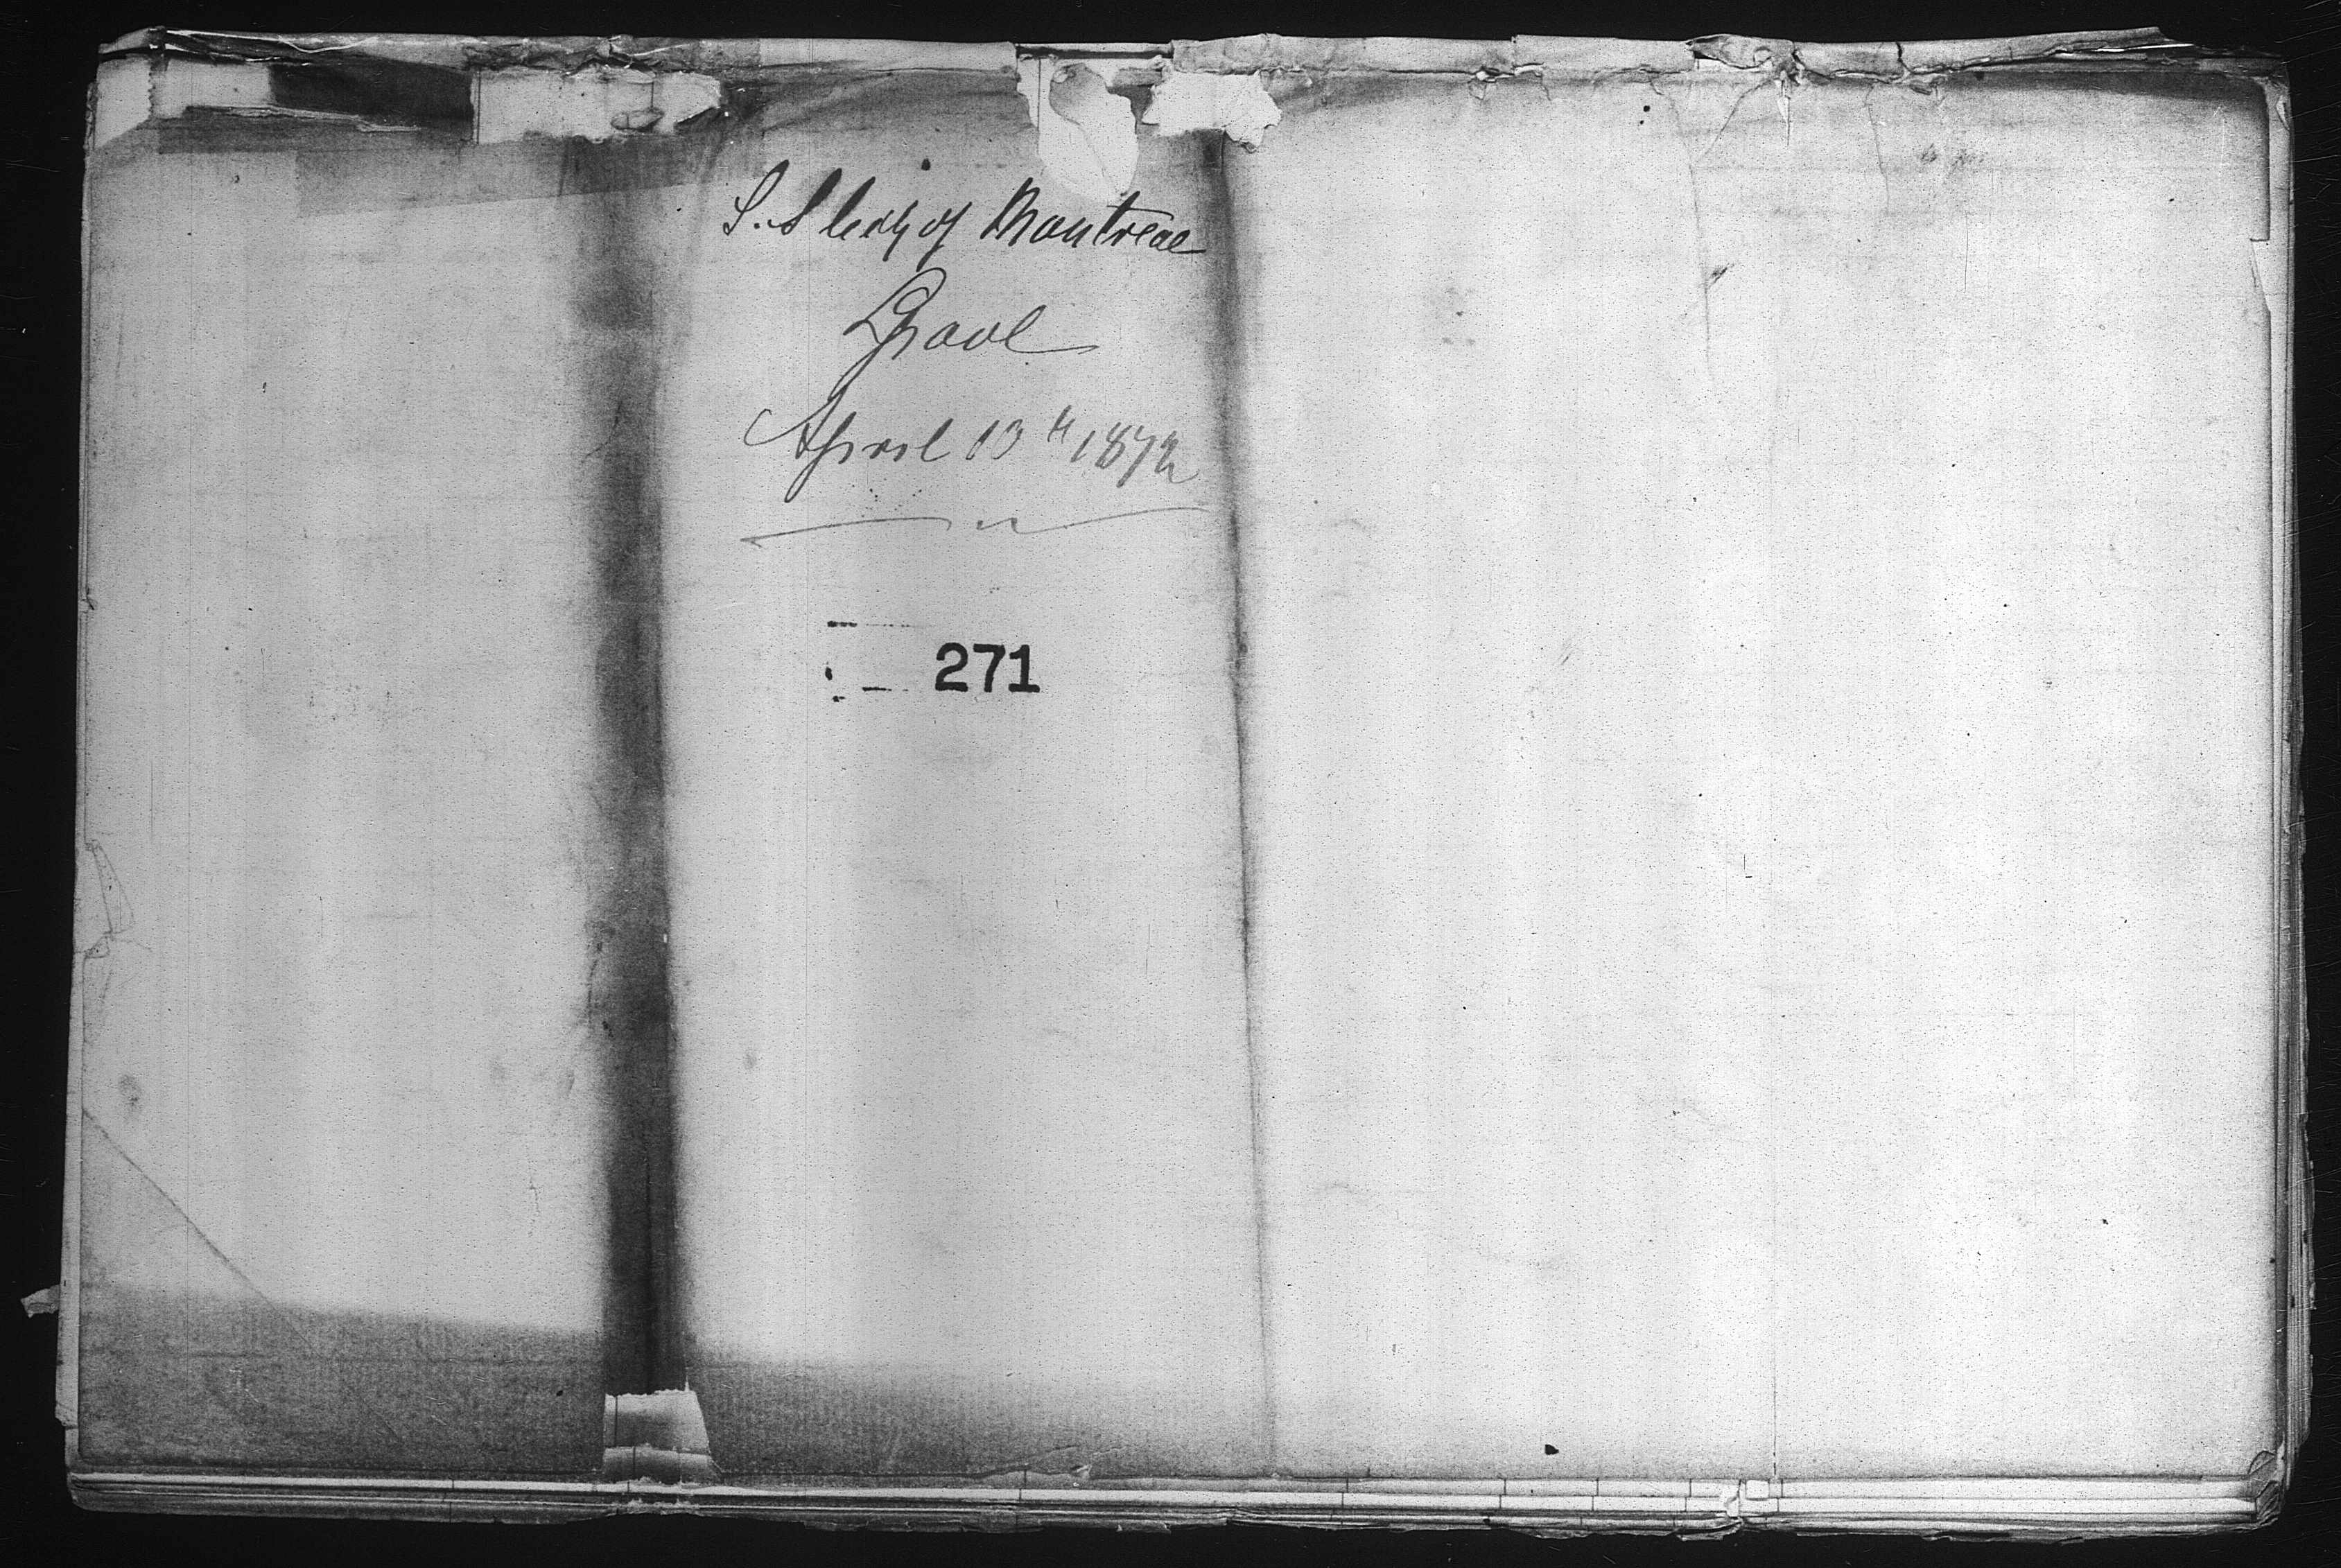 S.S City of Montreal
Lpool
April 13th 1872
271